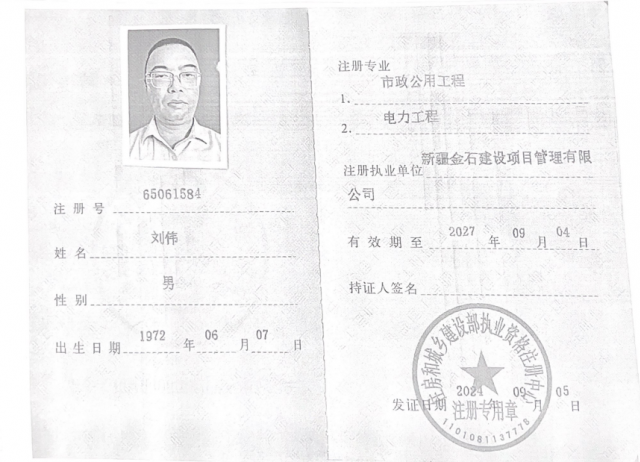 65061584
注册号
刘伟
姓名
男
性别
出生日期 1972 年 06 月 07 日
注册专业
市政公用工程
1.
电力工程
2.
新疆金石建设项目管理有限
注册执业单位
公司
有效期至 2027 年 09 月 04 日
持证人签名
住房和城乡建设部执业资格注册中心
发证日期 2024 年 09 月 05 日
注册专用章
1101081137775